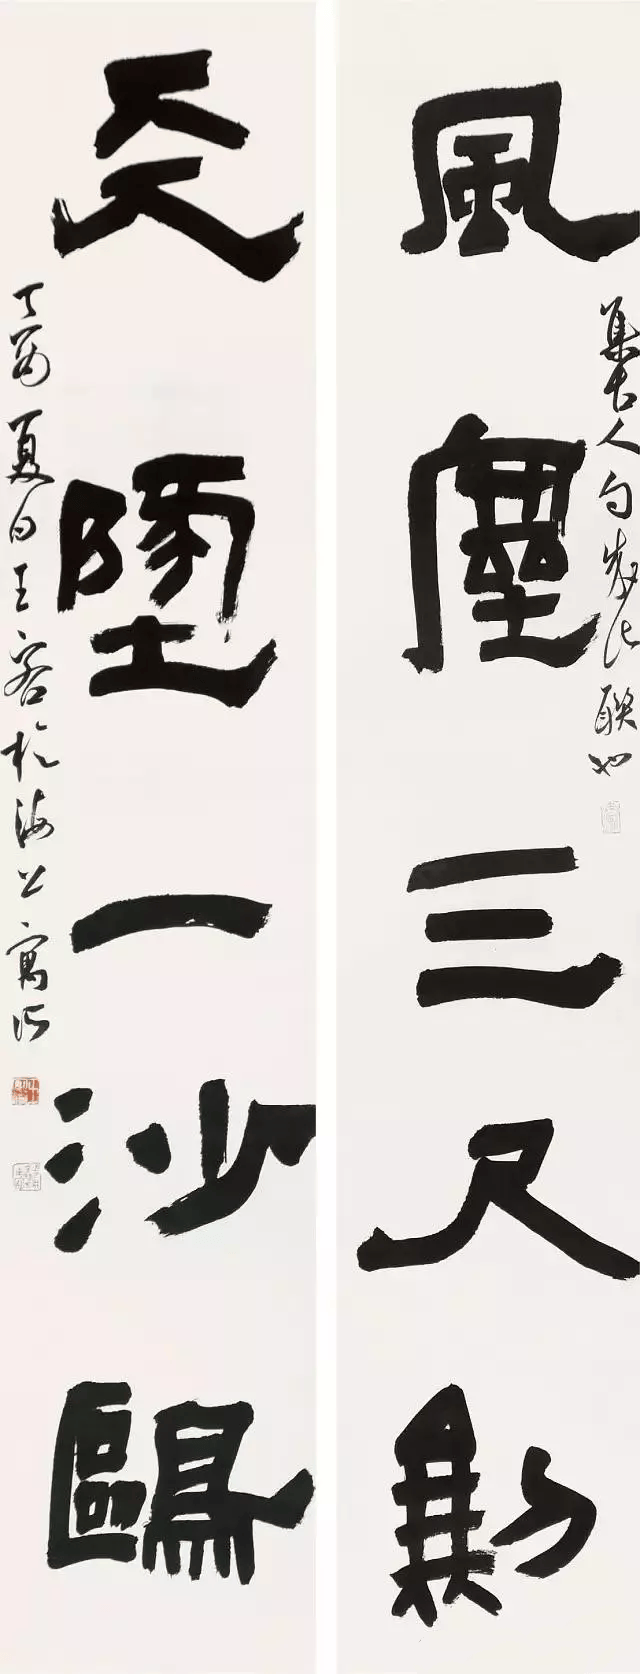 風塵三尺劍
集古人句成此聯也
天墬一沙鷗
丁酉夏日王客於海上寓所